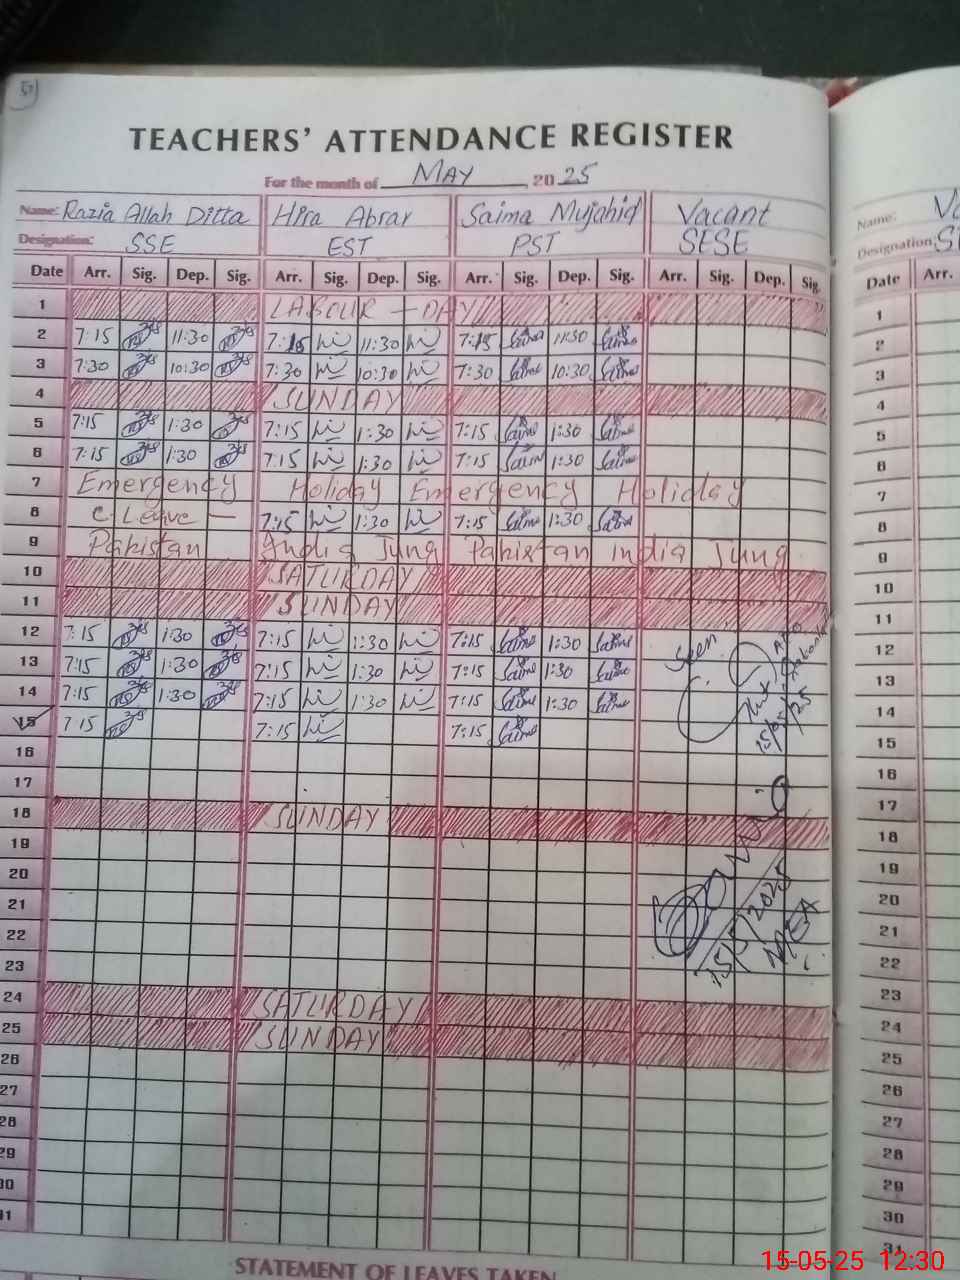 51
TEACHERS' ATTENDANCE REGISTER
For the month of MAY 2025
Name: Razia Allah Ditta Hira Abrar Saima Mujahid Vacant Name:
Designation: SSE EST PST SESE Designation:
Date Arr. Sig. Dep. Sig. Arr. Sig. Dep. Sig. Arr. Sig. Dep. Sig. Arr. Sig. Dep. Sig. Date Arr.
1 LABOUR - DAY 1
2 7:15 11:30 7:15 11:30 7:15 Saima 11:30 Saima 2
3 7:30 10:30 7:30 10:30 7:30 Saima 10:30 Saima 3
4 SUNDAY 4
5 7:15 1:30 7:15 1:30 7:15 Saima 1:30 Saima 5
6 7:15 1:30 7:15 1:30 7:15 Saima 1:30 Saima 6
7 Emergency Holiday Emergency Holiday 7
8 C. Leave — 7:15 1:30 7:15 Saima 1:30 Saima 8
9 Pakistan India Jung Pakistan India Jung 9
10 SATURDAY 10
11 SUNDAY 11
12 7:15 1:30 7:15 1:30 7:15 Saima 1:30 Saima Seen 12
13 7:15 1:30 7:15 1:30 7:15 Saima 1:30 13
14 7:15 1:30 7:15 1:30 7:15 Saima 1:30 Saima 14
15 7:15 7:15 7:15 Saima 15/05/25 15
16 16
17 17
18 SUNDAY 18
19 19
20 20
21 15/5/2025 21
22 MEA 22
23 23
24 SATURDAY 24
25 SUNDAY 25
26 26
27 27
28 28
29 29
30 30
31 31
STATEMENT OF LEAVES TAKEN
15-05-25 12:30